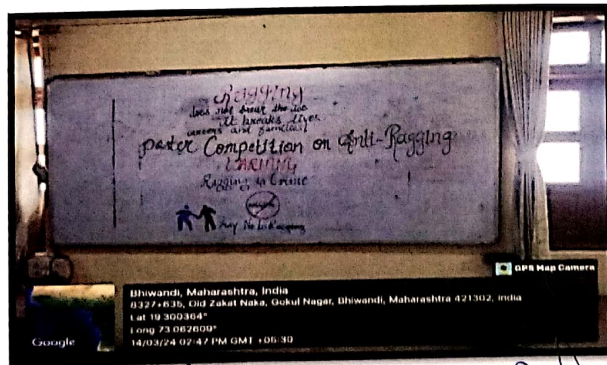 Ragging
does not break the ice
it breaks lives
careers and families!
poster Competition on Anti-Ragging
WARNING
Ragging is Crime
Say No to Ragging
GPS Map Camera
Bhiwandi, Maharashtra, India
8327+635, Old Zakat Naka, Gokul Nagar, Bhiwandi, Maharashtra 421302, India
Lat 19.300364°
Long 73.062609°
14/03/24 02:47 PM GMT +05:30
Google